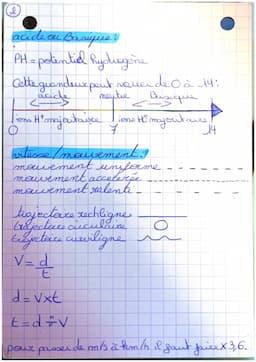 ②
acide ou Basique:
PH = potentiel hydrogène
Cette grandeur peut varier de 0 à 14:
acide neutre Basique
ions H⁺ majoritaire ions H⁺ majoritaires
0 7 14
vitesse/mouvement:
mouvement uniforme
mouvement accélérée
mouvement ralenti
trajectoire rectiligne
trajectoire circulaire
trajectoire curviligne
V = d/t
d = V×t
t = d ÷ V
pour passer de m/s à km/h il faut faire × 3,6.